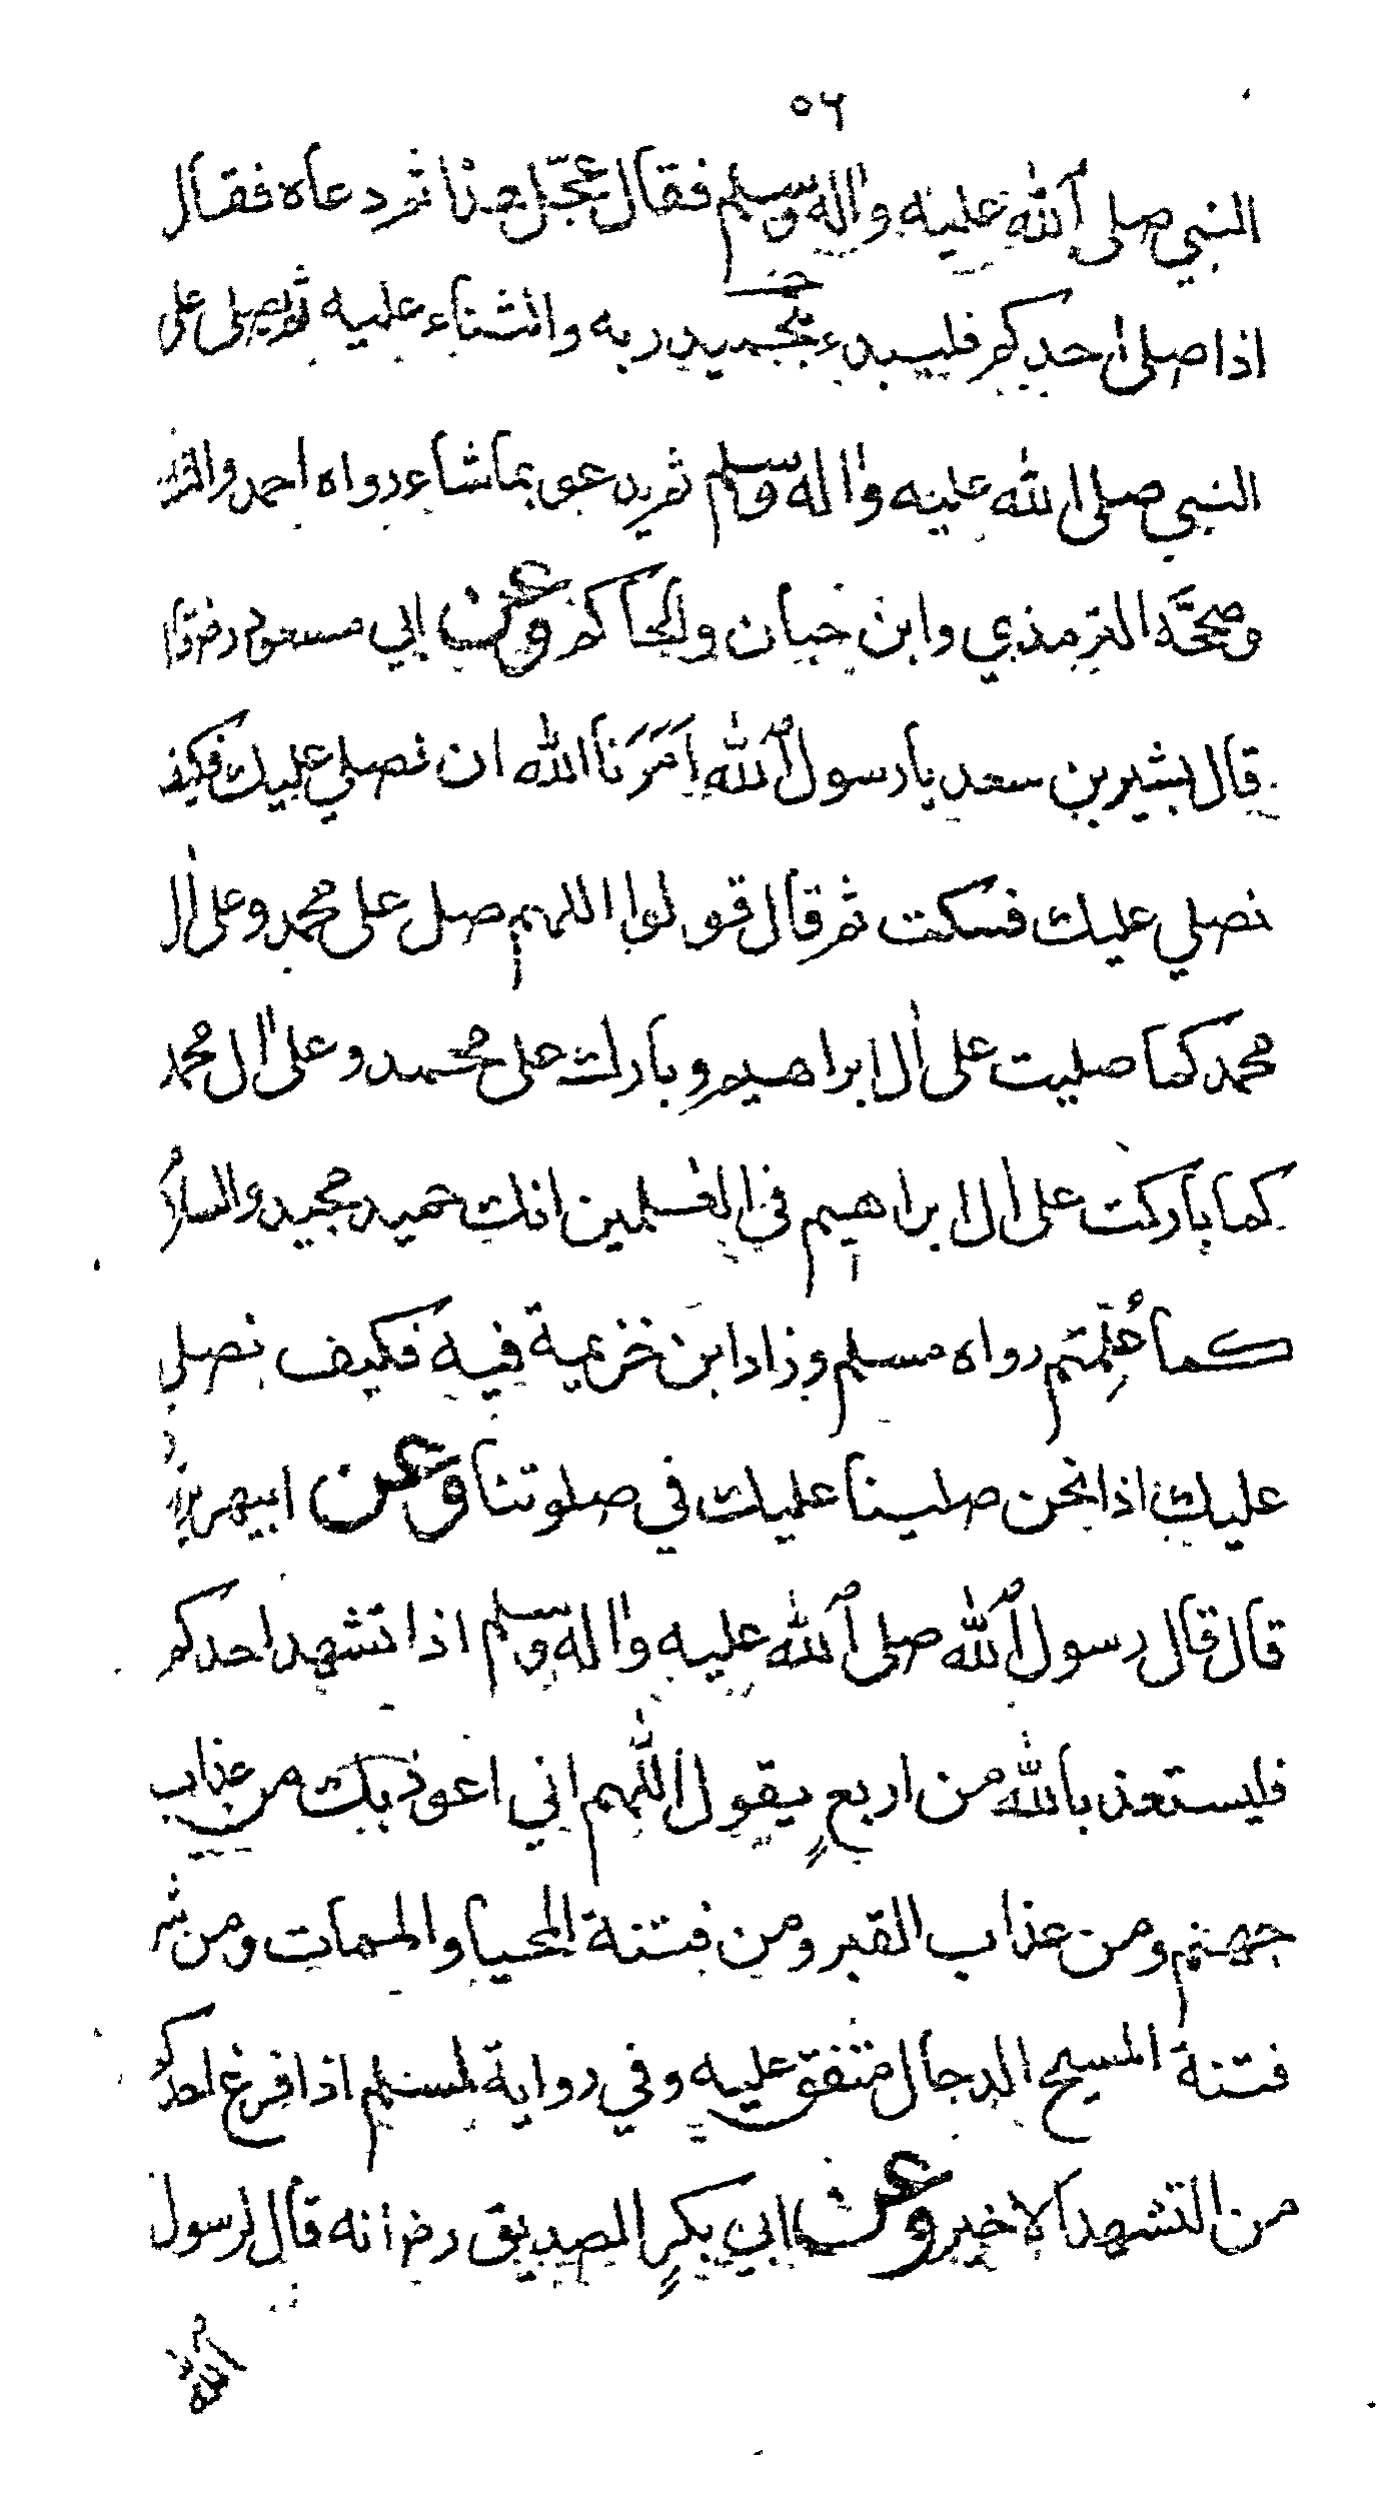 ٥٦
النبي صلى الله عليه واله وسلم فقال عجّل هذا ثم دعاه فقال
اذا صلى احدكم فليبدء بتحميد ربه والثناء عليه ثم يصلى على
النبي صلى الله عليه واله وسلم ثم يدعو بما شاء رواه احمد والثلثة
وصححَّه الترمذي وابن حبان والحاكم وعن ابي مسعود رض قال
قال بشير بن سعد يا رسول الله اَمَرَنا الله ان نصلي عليك فكيف
نصلي عليك فسكت ثم قال قولوا اللهم صل على محمد وعلى ال
محمد كما صليت على ال ابراهيم وبارك على محمد وعلى ال محمد
كما باركت على ال ابراهيم في العلمين انك حميد مجيد والسلام
كما عُلِّمتم رواه مسلم وزاد ابن خزيمة فيه فكيف نصلي
عليك اذا نحن صلينا عليك في صلوتنا وعن ابيهريرة
قال قال رسول الله صلى الله عليه واله وسلم اذا تشهد احدكم
فليستعذ بالله من اربعٍ يقول اللهم اني اعوذ بك من عذاب
جهنم ومن عذاب القبر ومن فتنة المحيا والممات ومن شر
فتنة المسيح الدجال متفق عليه وفي رواية لمسلم اذا فرغ احدكم
من التشهد الاخير وعن ابي بكرٍ الصديق رض انه قال لرسول
الله